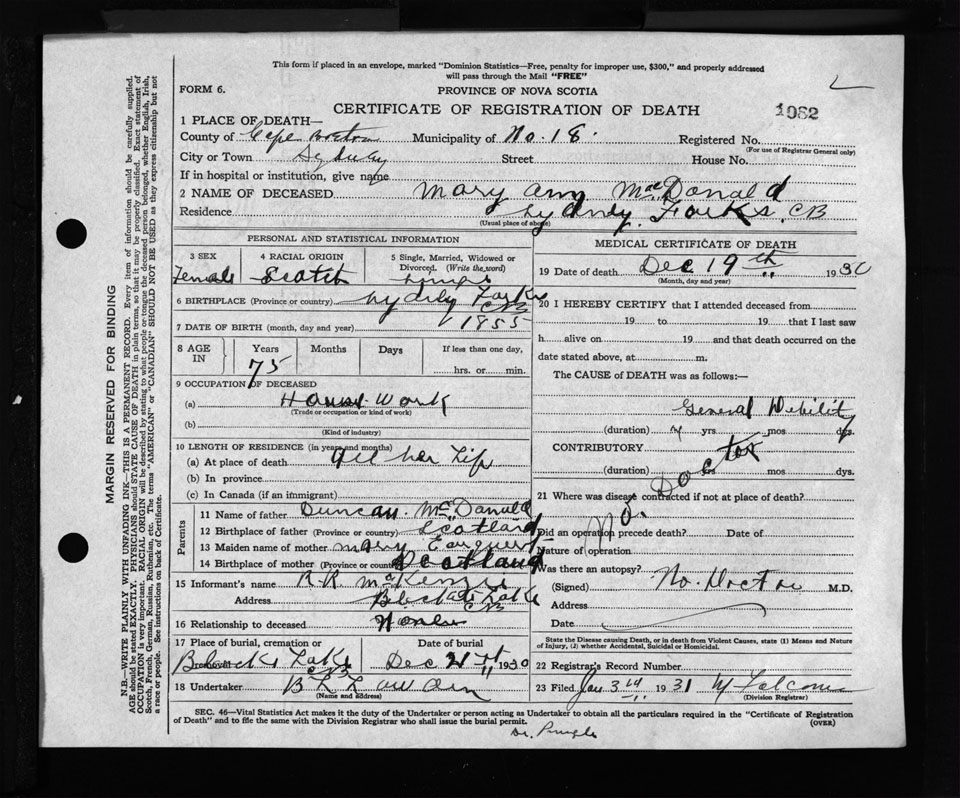 This form if placed in an envelope, marked "Dominion Statistics—Free, penalty for improper use, $300," and properly addressed
will pass through the Mail "FREE"
FORM 6.
PROVINCE OF NOVA SCOTIA
CERTIFICATE OF REGISTRATION OF DEATH
1082
1 PLACE OF DEATH—
County of Cape Breton Municipality of No. 18. Registered No.
(For use of Registrar General only)
City or Town Sydney Street House No.
If in hospital or institution, give name
2 NAME OF DECEASED Mary Ann MacDonald
Residence Sydney Forks CB
(Usual place of abode)
PERSONAL AND STATISTICAL INFORMATION
3 SEX 4 RACIAL ORIGIN 5 Single, Married, Widowed or
Divorced. (Write the word)
Female Scotch Single
6 BIRTHPLACE (Province or country) Sydney Forks
CB
7 DATE OF BIRTH (month, day and year) 1855
8 AGE IN Years Months Days If less than one day,
75 hrs. or min.
9 OCCUPATION OF DECEASED
(a) House Work
(Trade or occupation or kind of work)
(b)
(Kind of industry)
10 LENGTH OF RESIDENCE (in years and months)
(a) At place of death All her Life
(b) In province
(c) In Canada (if an immigrant)
Parents
11 Name of father Duncan McDonald
12 Birthplace of father (Province or country) Scotland
13 Maiden name of mother Mary
14 Birthplace of mother (Province or country) Scotland
15 Informant's name R.R. McKenzie
Address Lake
CB
16 Relationship to deceased
17 Place of burial, cremation or removal Date of burial
Lake Dec 21st 1930
CB
18 Undertaker
(Name and address)
MEDICAL CERTIFICATE OF DEATH
19 Date of death Dec 19th 1930
(Month, day and year)
20 I HEREBY CERTIFY that I attended deceased from
19 to 19 that I last saw
h alive on 19 and that death occurred on the
date stated above, at m.
The CAUSE of DEATH was as follows:—
General Debility
(duration) yrs. mos dys.
CONTRIBUTORY
(duration) yrs mos dys.
No Doctor
21 Where was disease contracted if not at place of death?
Did an operation precede death? Date of
Nature of operation
Was there an autopsy?
(Signed) No. Doctor M.D.
Address
Date
State the Disease causing Death, or in death from Violent Causes, state (1) Means and Nature
of Injury, (2) whether Accidental, Suicidal or Homicidal.
22 Registrar's Record Number
23 Filed Jan 3rd 1931
(Division Registrar)
SEC. 46—Vital Statistics Act makes it the duty of the Undertaker or person acting as Undertaker to obtain all the particulars required in the "Certificate of Registration
of Death" and to file the same with the Division Registrar who shall issue the burial permit.
(OVER)
Dr. Pringle
MARGIN RESERVED FOR BINDING
N.B.—WRITE PLAINLY WITH UNFADING INK—THIS IS A PERMANENT RECORD. Every item of information should be carefully supplied.
AGE should be stated EXACTLY. PHYSICIANS should STATE CAUSE OF DEATH in plain terms, so that it may be properly classified. Exact statement of
OCCUPATION is very important. RACIAL ORIGIN will be described by stating to what people or tongue the deceased person belonged, whether English, Irish,
Scotch, French, German, Russian, Ruthenian, etc. The terms "AMERICAN" or "CANADIAN" SHOULD NOT BE USED as they express citizenship but not
a race or people. See instructions on back of Certificate.